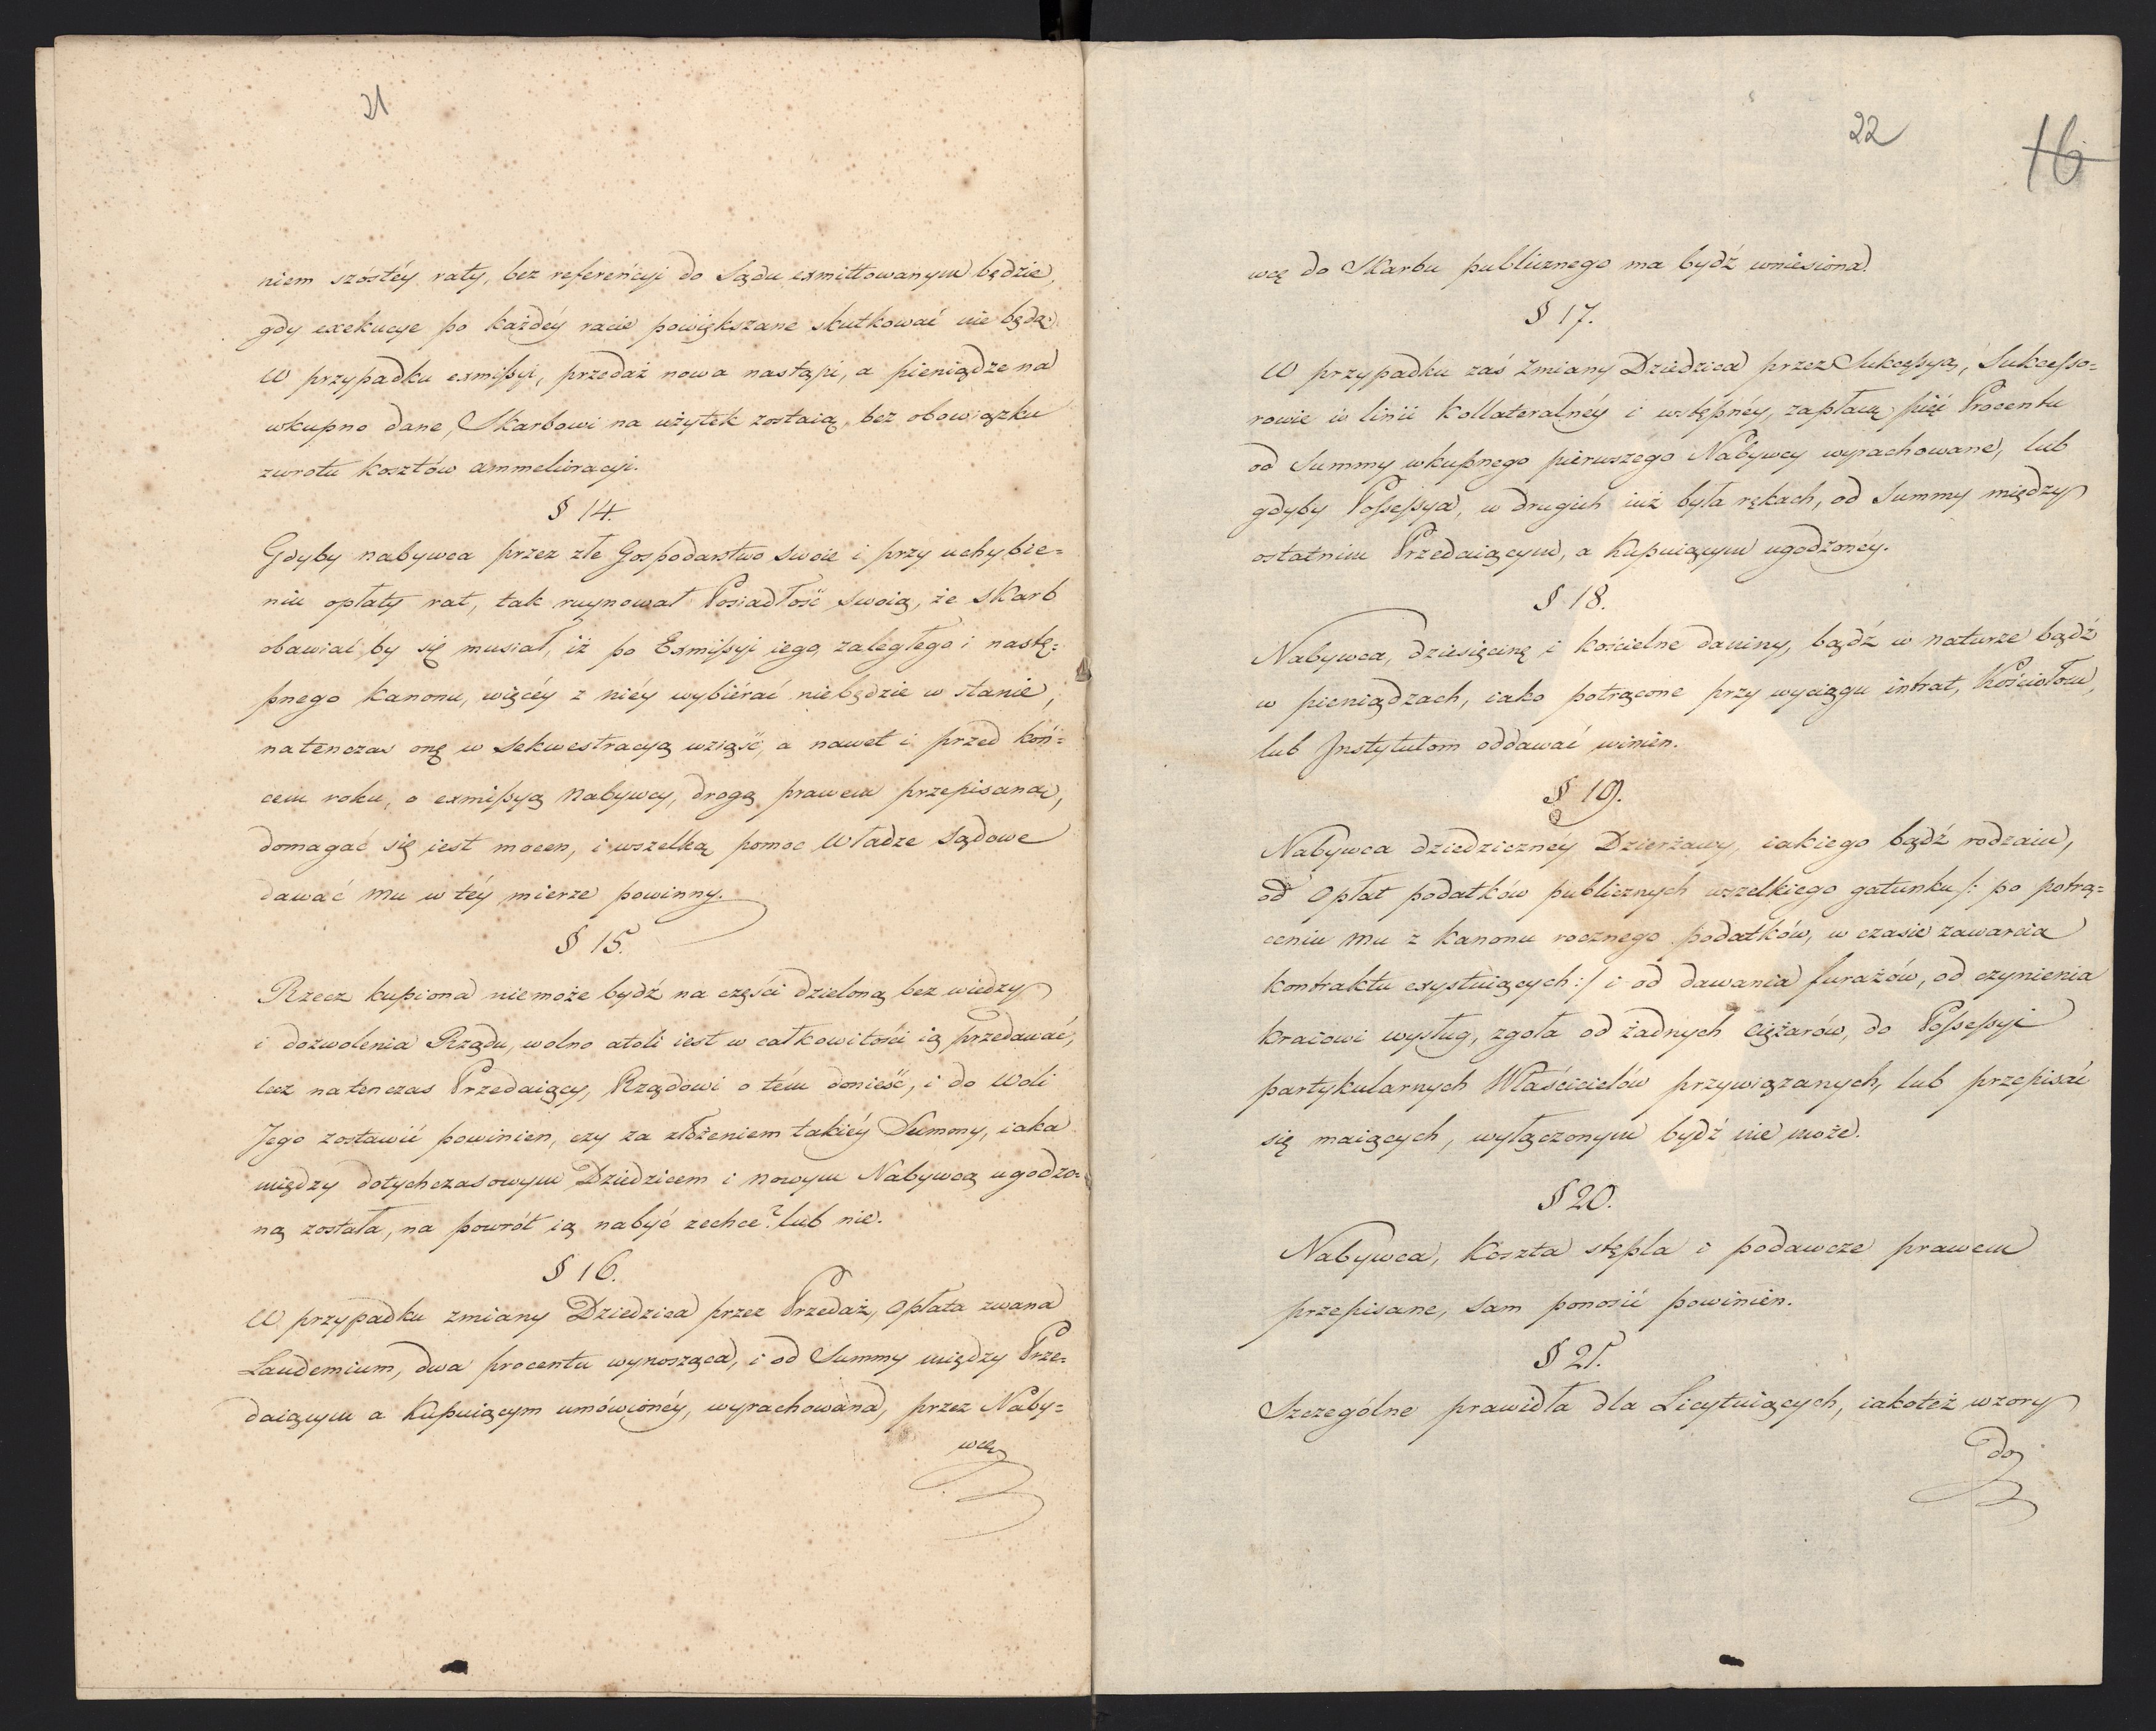 21
niem szóstéy raty, bez referéncyi do Sądu exmittowanym będzie,
gdy exekucye po każdéy racie powiększane skutkować nie będą.
W przypadku exmissyi, przedaż nowa nastąpi, a pieniądze na
wkupno dane, Skarbowi na użytek zostaią, bez obowiązku
zwrotu kosztów ammelioracyi.
§ 14.
Gdyby nabywca przez złe Gospodarstwo swoie i przy uchybie=
niu opłaty rat, tak ruynował Posiadłość swoią, że Skarb
obawiać by się musiał, iż po Exmissyi iego zaległego i nastę=
pnego Kanonu, więcéy z niéy wybiérać niebędzie w stanie,
natenczas onę w Sekwestracyą wziąść, a nawet i przed koń=
cem roku, o exmissyą Nabywcy, drogą prawem przepisaną,
domagać się iest mocen, i wszelką pomoc Władze Sądowe
dawać mu w téy mierze powinny.
§ 15.
Rzecz kupiona niemoże bydź na części dzieloną bez wiedzy
i dozwolenia Rządu, wolno atoli iest w całkowitości ią przedawać,
lecz natenczas Przedaiący, Rządowi o tém donieść, i do Woli
Jego zostawić powinien, czy za złożeniem takiéy Summy, iaka
między dotychczasowym Dziedzicem i nowym Nabywcą ugodzo=
ną została, na powrót ią nabyć zechce? lub nie.
§ 16.
W przypadku zmiany Dziedzica przez Przedaż, Opłata zwana
Laudemium, dwa procentu wynosząca, i od Summy między Prze=
daiącym a Kupuiącym umówionéy, wyrachowana, przez Naby=
wcę
22
16
wcę do Skarbu publicznego ma bydź wniesiona.
§ 17.
W przypadku zaś zmiany Dziedzica przez Sukcessyą, Sukcesso=
rowie w linii Kollateralnéy i wstępnéy, zapłacą pięć Procentu
od Summy wkupnego pierwszego Nabywcy wyrachowane, lub
gdyby Possessya, w drugich iuż była rękach, od Summy między
ostatnim Przedaiącym, a Kupuiącym ugodzonéy.
§ 18.
Nabywca, dziesięcinę i kościelne daniny, bądź w naturze bądź
w pieniądzach, iako potrącone przy wyciągu intrat, Kościołom,
lub Jnstytutom oddawać winien.
§ 19.
Nabywca dziedzicznéy Dzierżawy, iakiego bądź rodzaiu,
od Opłat podatków publicznych wszelkiego gatunku /: po potrą=
ceniu mu z Kanonu rocznego podatków, w czasie zawarcia
kontraktu exystuiących :/ i od dawania furażów, od czynienia
kraiowi wysług, zgoła od żadnych Ciężarów, do Possessyi
partykularnych Właścicielów przywiązanych, lub przepisać
się maiących, wyłączonym bydź nie może.
§ 20.
Nabywca, Koszta stępla i podawcze prawem
przepisane, sam ponosić powinien.
§ 21.
Szczególne prawidła dla Licytuiących, iakoteż wzory
do